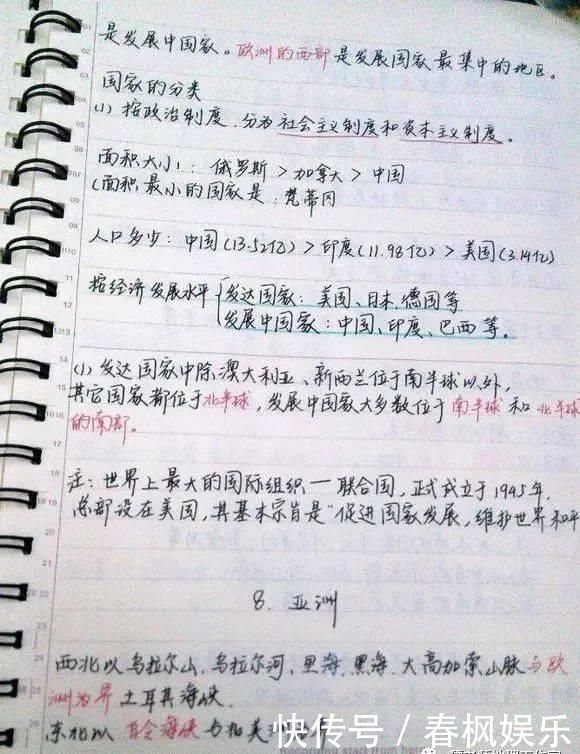 是发展中国家。欧洲的西部是发展国家最集中的地区。
国家的分类
(1) 按政治制度.分为社会主义制度和资本主义制度。
面积大小：俄罗斯>加拿大>中国
(面积最小的国家是：梵蒂冈
人口多少：中国(13.52亿)>印度(11.98亿)>美国(3.14亿)
按经济发展水平 发达国家：美国、日本.德国等
发展中国家：中国、印度、巴西等.
(1) 发达国家中除澳大利亚、新西兰位于南半球以外,
其它国家都位于北半球,发展中国家大多数位于南半球和北半球
的南部。
注：世界上最大的国际组织一联合国,正式成立于1945年.
总部设在美国,其基本宗旨是"促进国家发展,维护世界和平
8.亚洲
西北以乌拉尔山.乌拉尔河.里海.黑海.大高加索山脉与欧
洲为界 土耳其海峡.
东北以白令海峡与北美
快传号 / 春枫娱乐